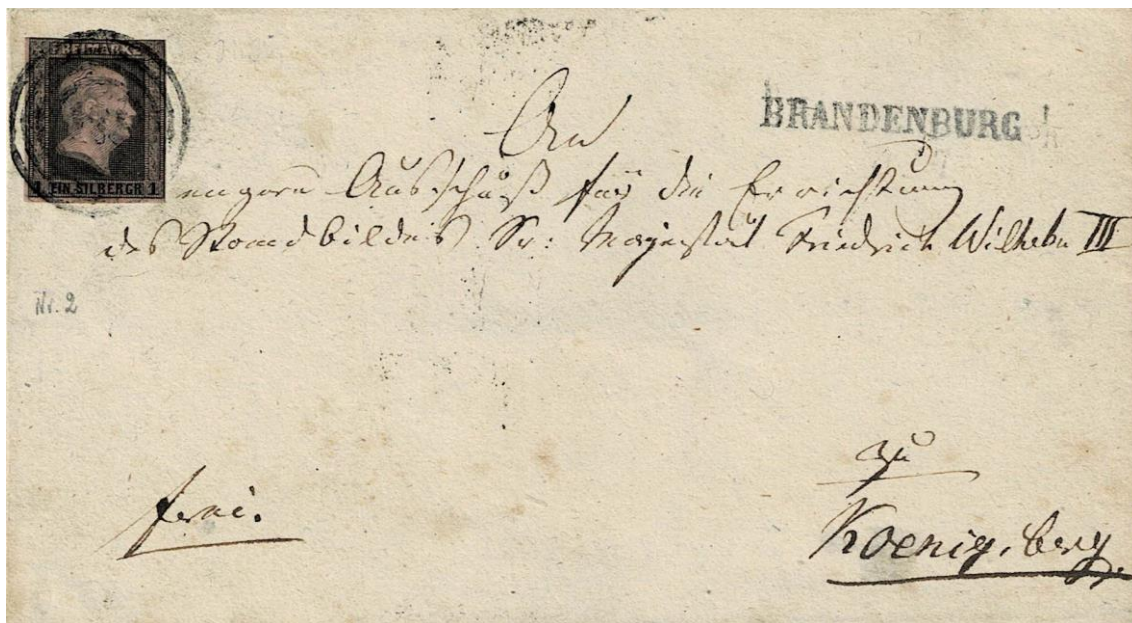 FREIMARKE
1 EIN SILBERGR 1
BRANDENBURG
An
engern Ausschuß für die Errichtung
des Standbildes Sr: Majestät Friedrich Wilhelm III
Nr. 2
zu
frei.
Koenigsberg.